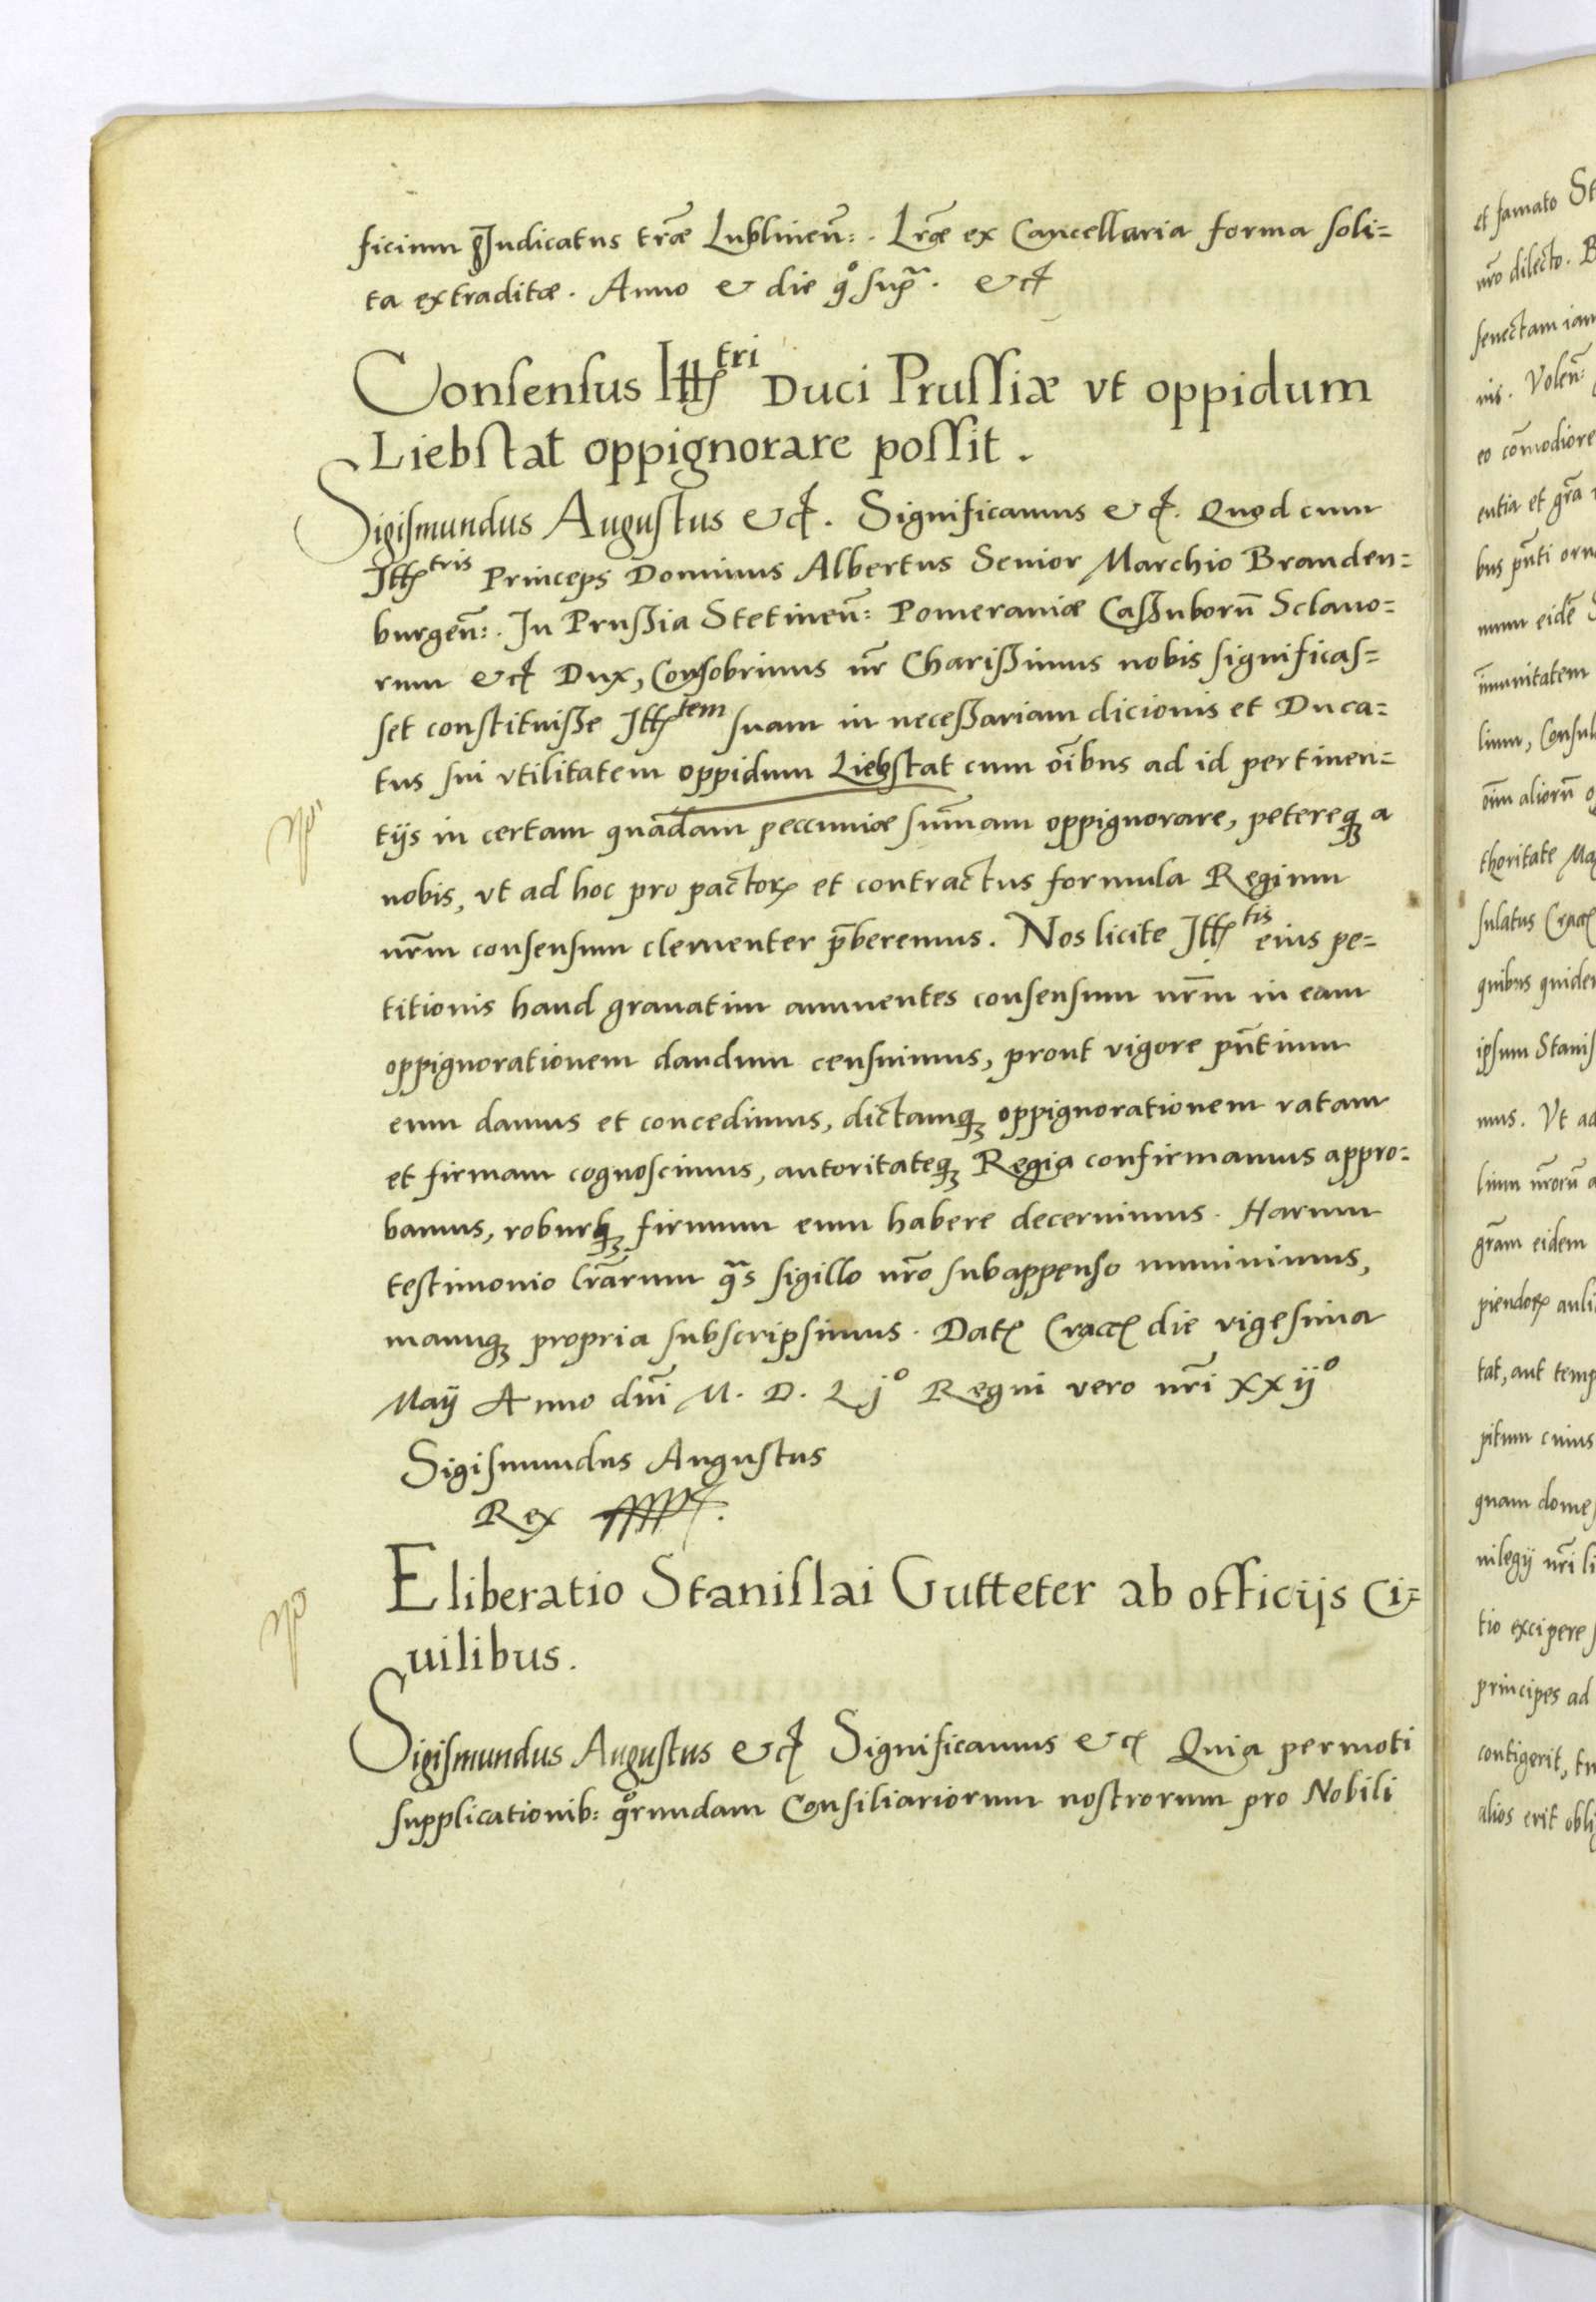 ficium Iudicatus tr̃æ Lublineñ: . Lr̃æ ex Cancellaria forma soli=
ta extraditæ . Anno & die qͦ supᷓ . &c
Consensus Illtri Duci Prussiæ vt oppidum
Liebstat oppignorare possit .
Sigismundus Augustus &c. Significamus &c. Quod cum
Illtris Princeps Dominus Albertus Senior Marchio Branden=
burgeñ: . In Prußia Stetineñ: Pomeraniæ Caßuborũ Sclauo=
rum &c Dux, Consobrinus nr̃ Charißimus nobis significas=
set constituiße Illtem suam in neceßariam dicionis et Duca=
tus sui vtilitatem oppidum Liebstat cum oĩbus ad id pertinen=
tijs in certam quãdam peccuniæ sum̃am oppignorare, petereqꝫ a
nobis, vt ad hoc pro pactoꝝ et contractus formula Regium
nr̃m consensum clementer p̃beremus . Nos licite Illtis eius pe=
titionis haud grauatim annuentes consensum nr̃m in eam
oppignorationem dandum censuimus, prout vigore pñtium
eum damus et concedimus, dictamqꝫ oppignorationem ratam
et firmam cognoscimus, autoritateqꝫ Regia confirmamus appro=
bamus, roburqꝫ firmum eum habere decernimus . Harum
testimonio lr̃arum qᷓs sigillo nr̃o subappenso muniuimus,
manuqꝫ propria subscripsimus . Datꝭ Craccꝭ die vigesima
Maij Anno dñi M . D . Ljo Regni vero nr̃i xxijo
Sigismundus Augustus
Rex
Eliberatio Stanislai Gutteter ab officijs Ci=
uilibus .
Sigismundus Augustus &c Significamus &c Quia permoti
supplicationib: qͦrundam Consiliariorum nostrorum pro Nobili
et famato St
nr̃o dilecto . B
senectam iam
nis . Volen̄:
eo com̃odiore
entia et gr̃a
bus pñti orn
num eidẽ
im̃unitatem
lium, Consul
oĩm aliorũ o
thoritate Ma
sulatus Cracc
quibus quidem
ipsum Stanis
mus . Vt ad
lium nr̃orũ a
gr̃am eidem
piendoꝝ auli
tat, aut temp
pitum cuius
quam dome
uilegij nr̃i li
tio excipere
principes ad
contigerit, tu
alios erit obli